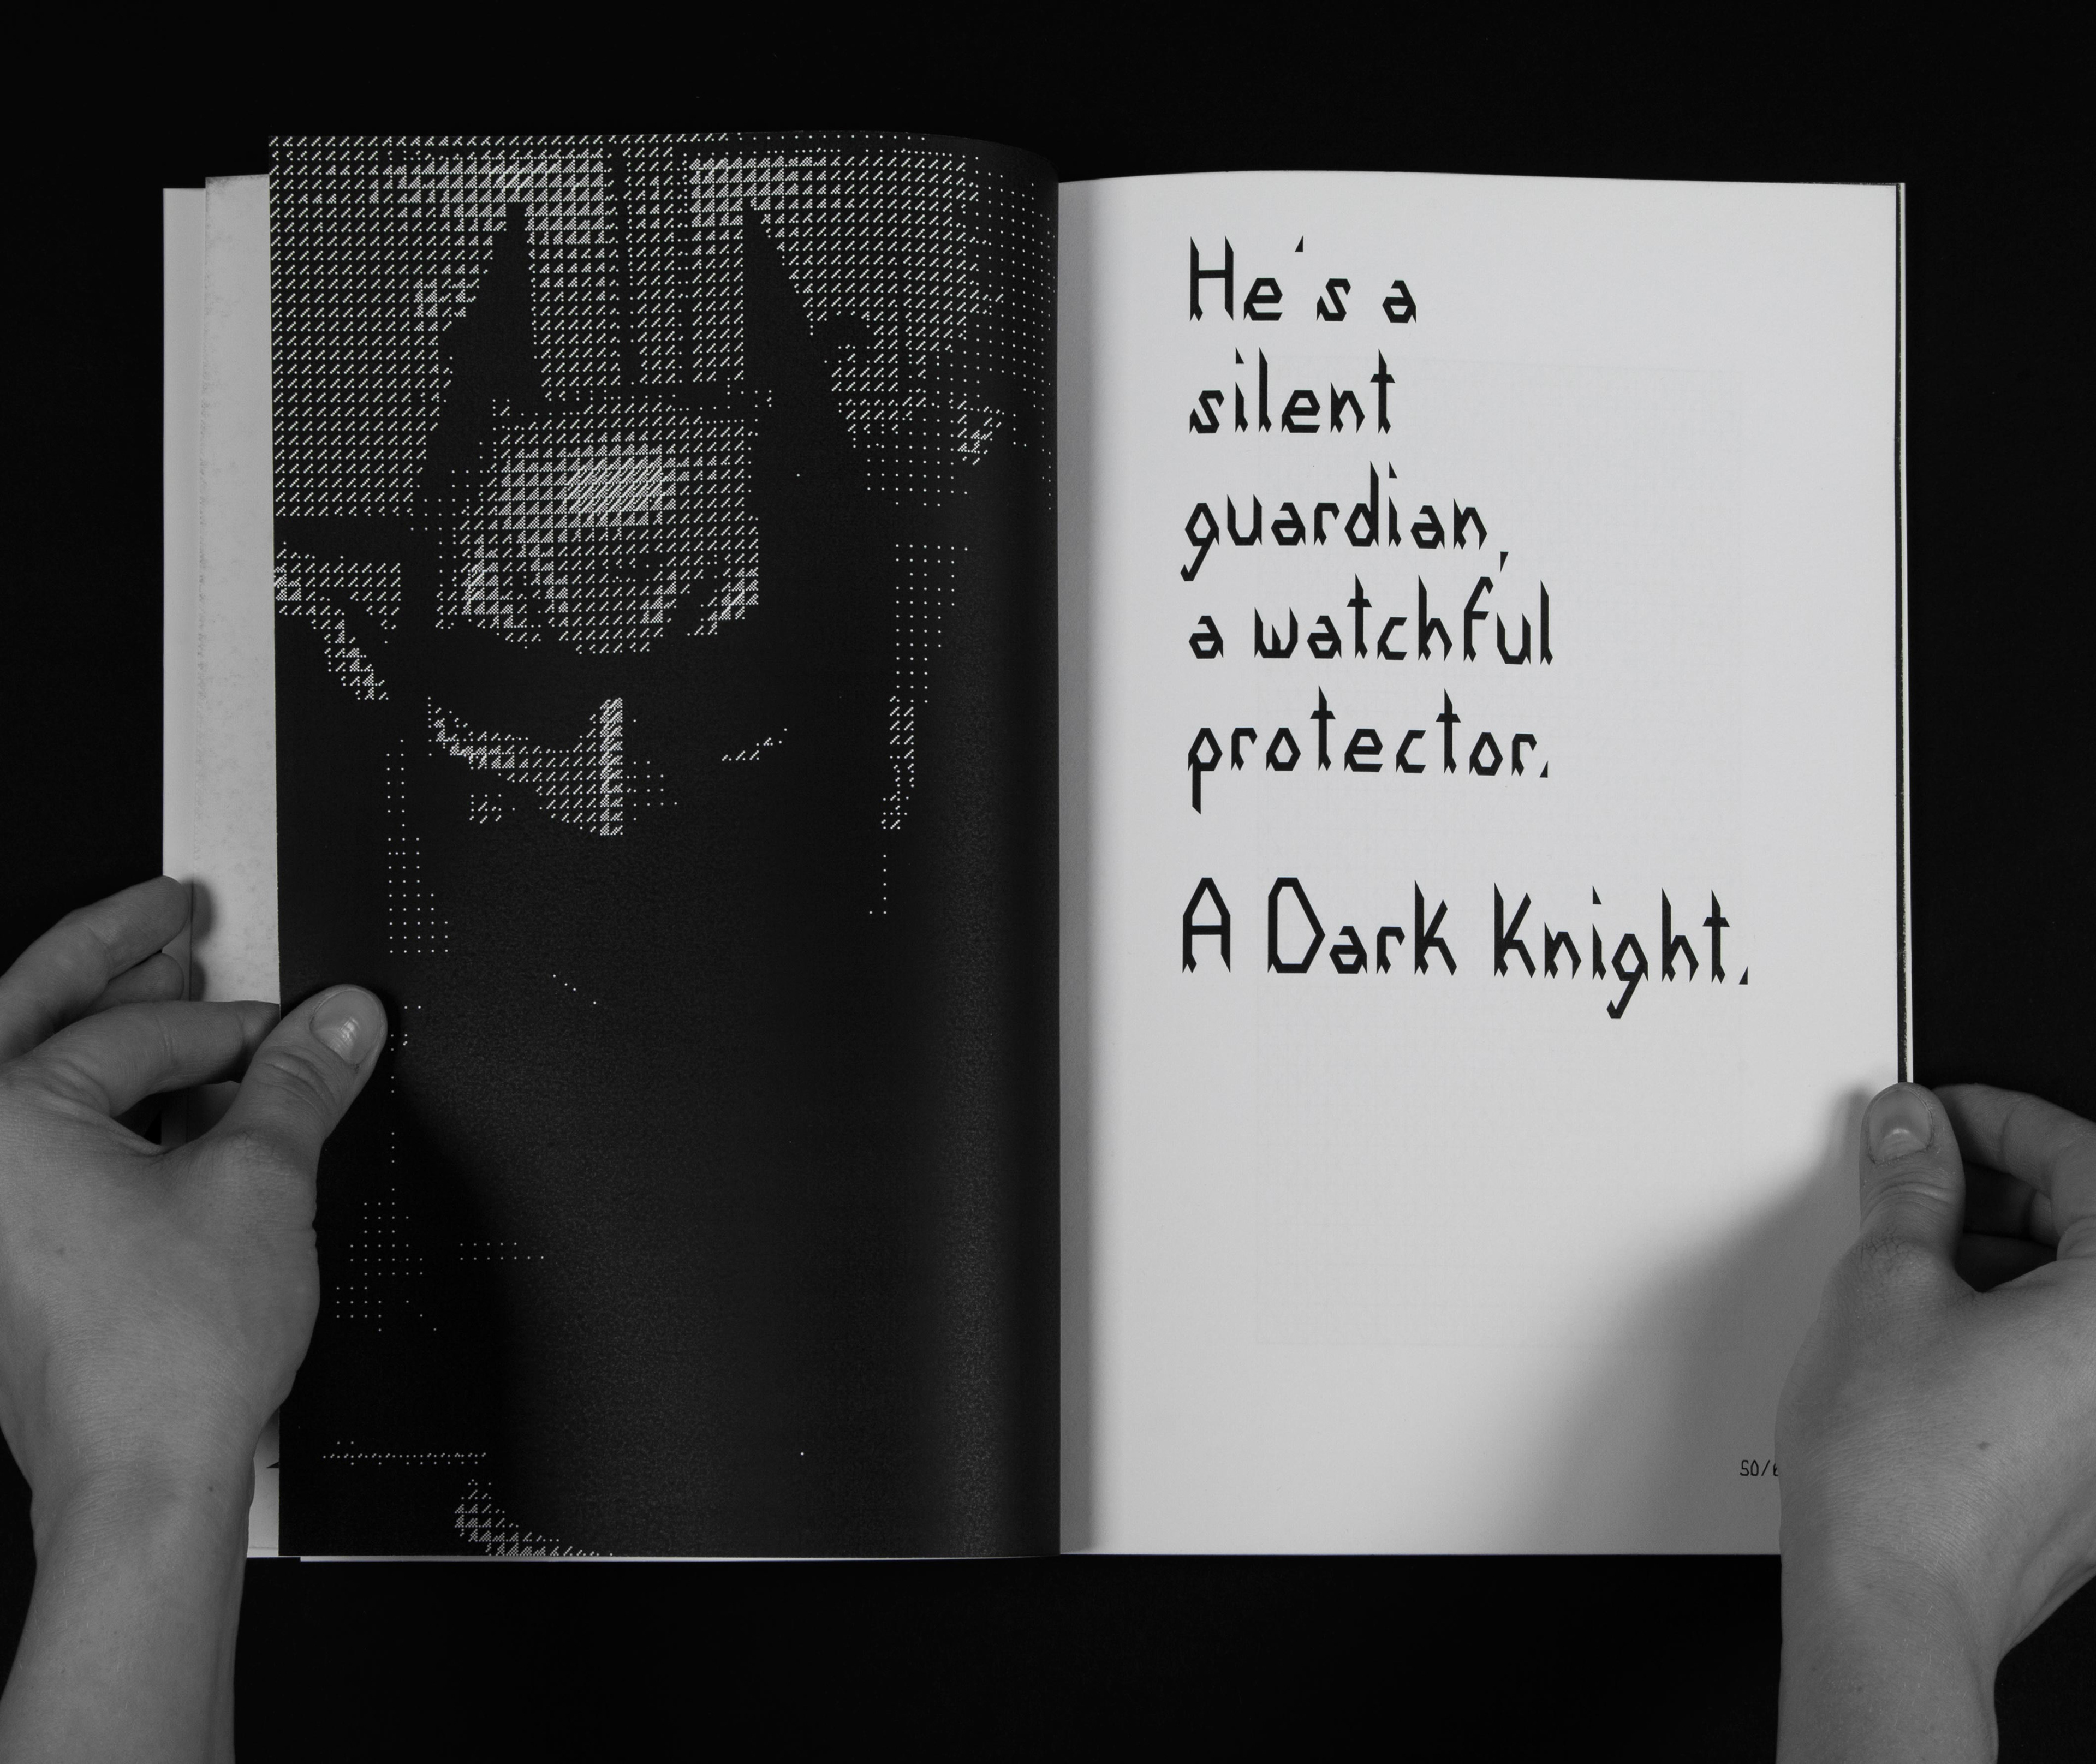 He's a
silent
guardian,
a watchful
protector.
A Dark Knight.
50/